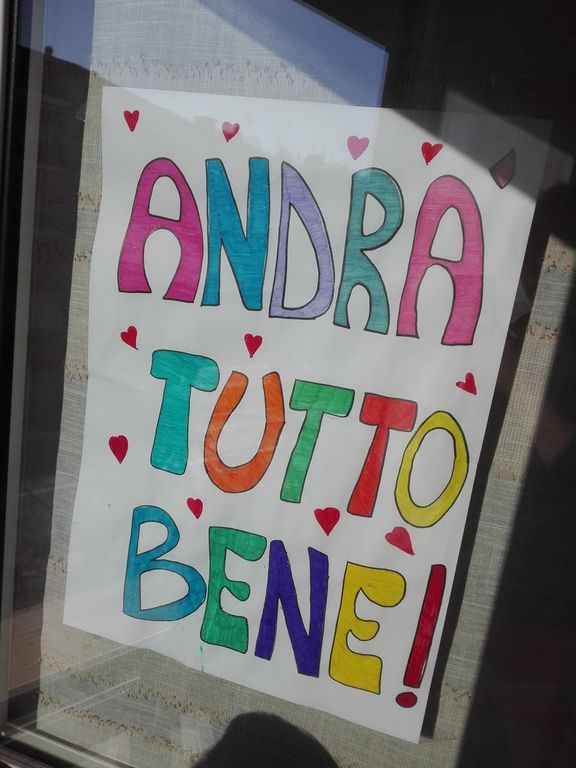 ANDRÀ
TUTTO
BENE!